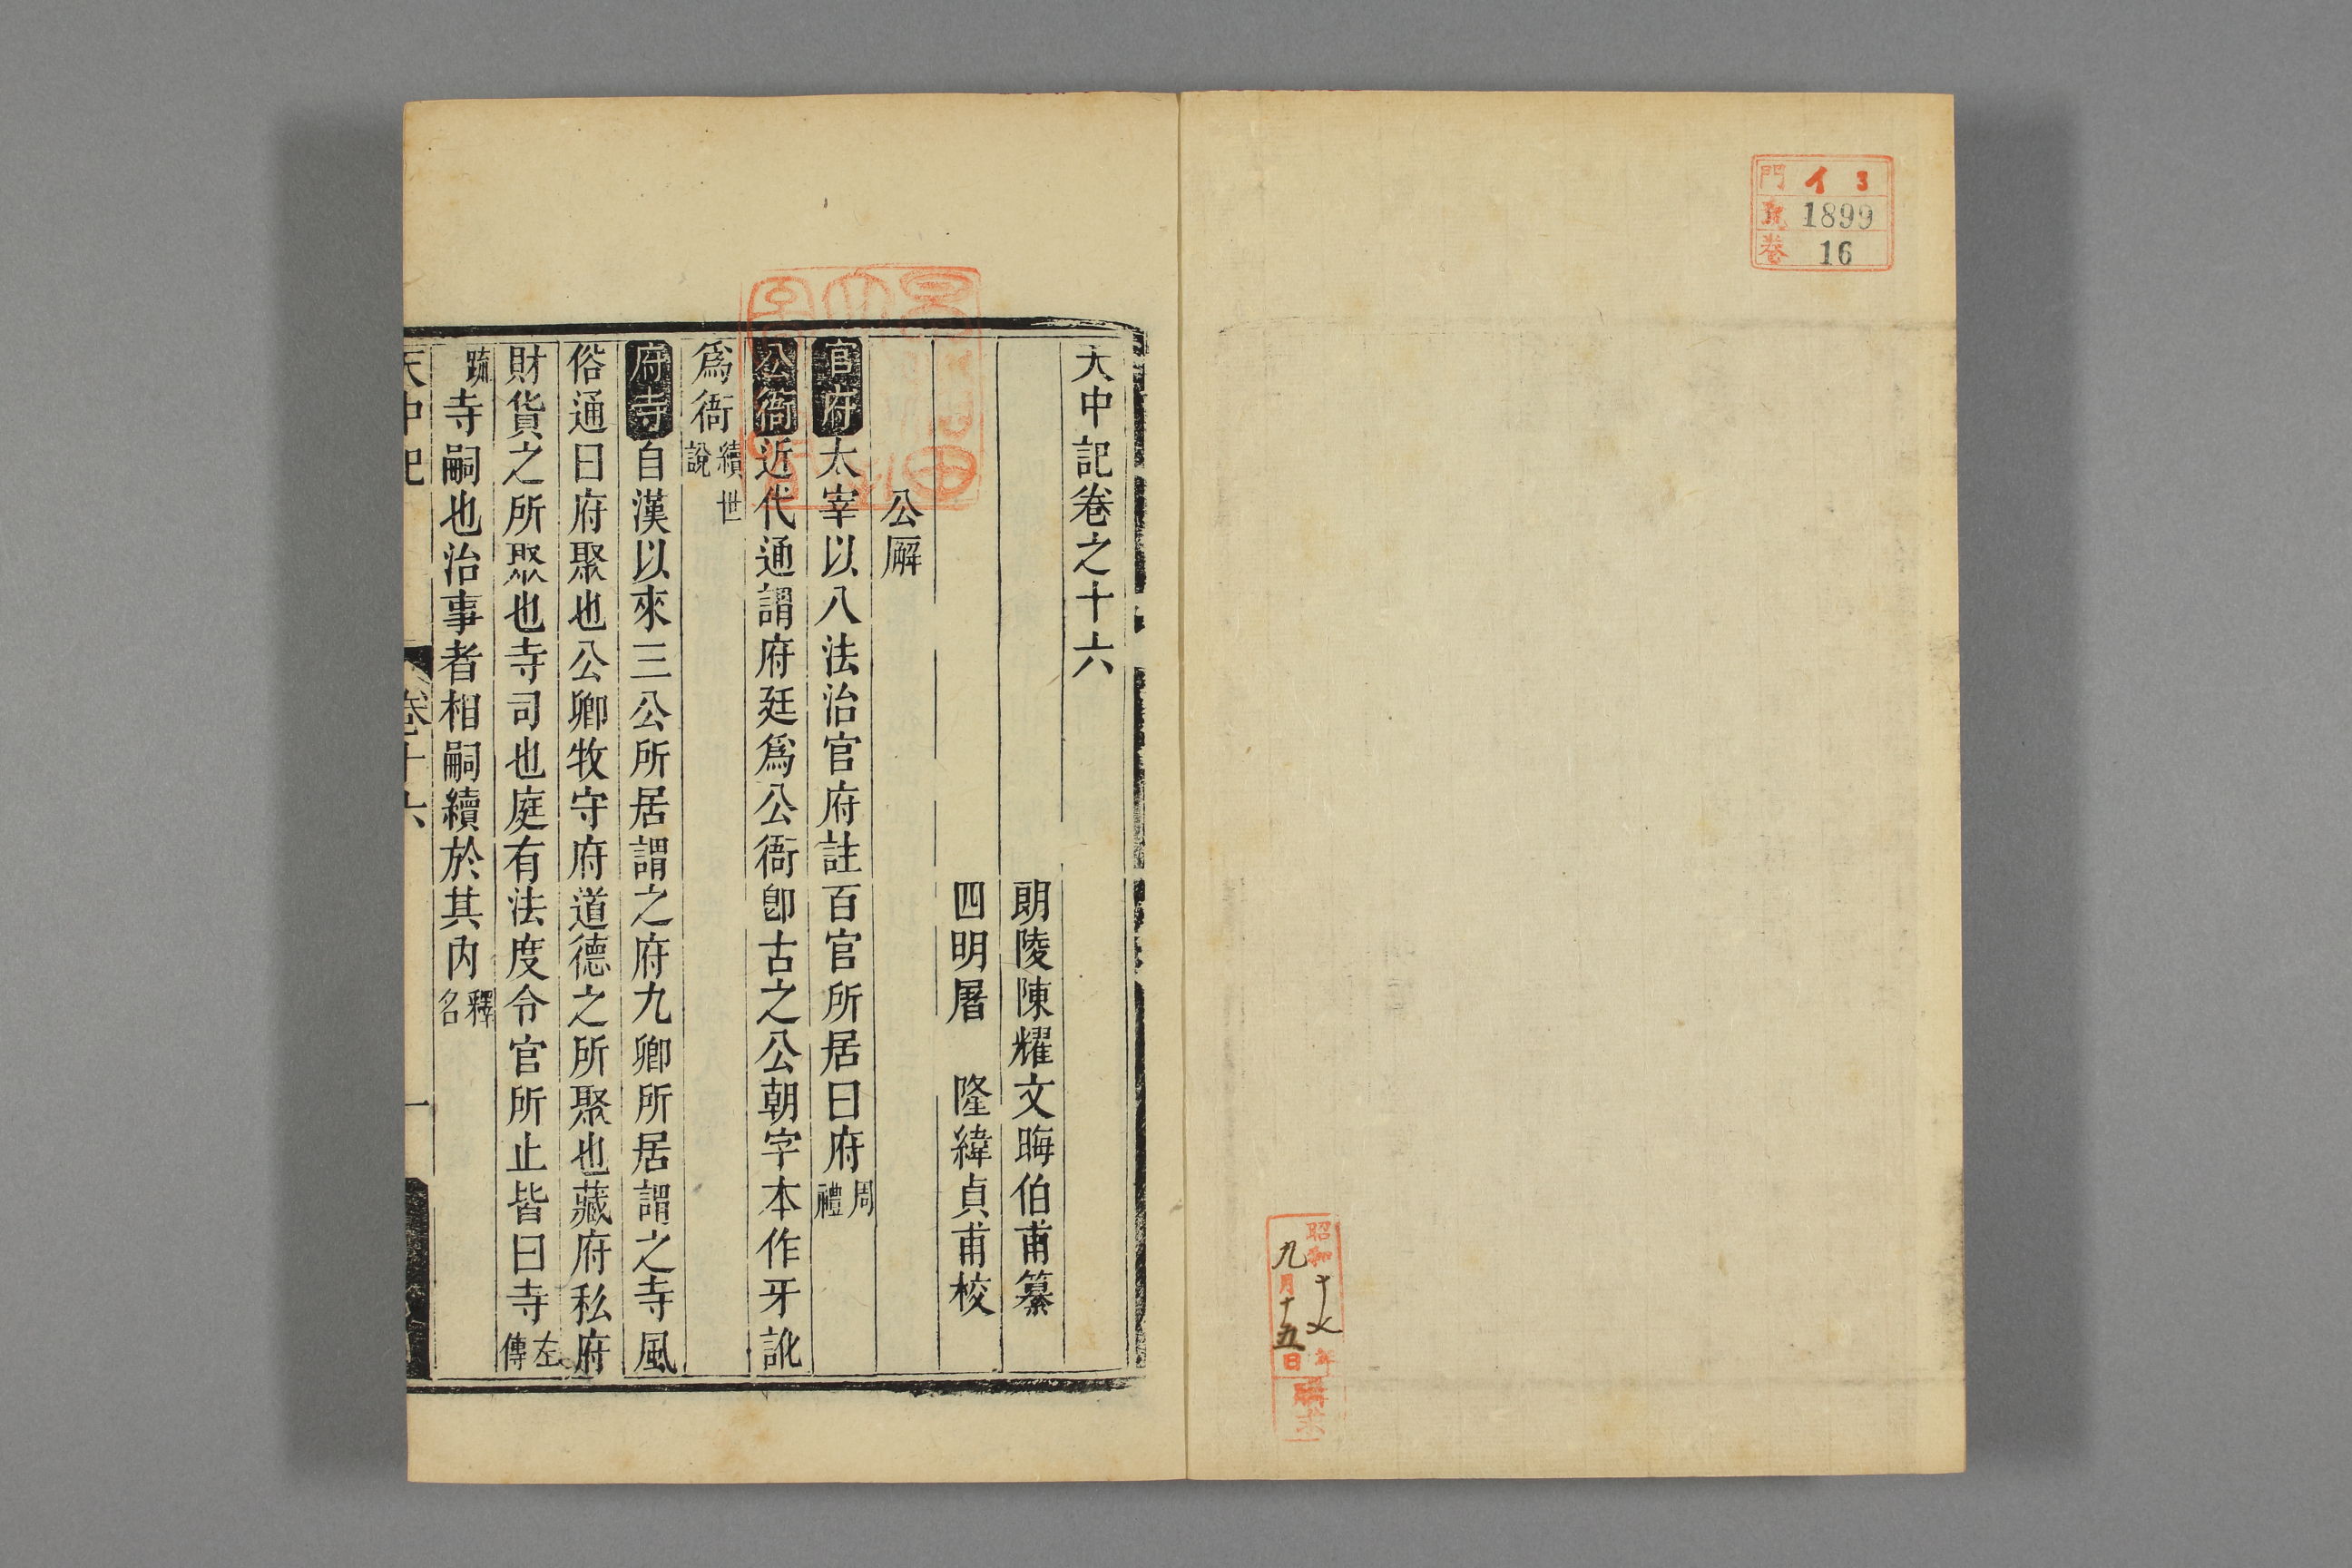 門 イ 3
號 1899
巻 16
昭和十七年
九月十五日
購求
天中記卷之十六
朗陵陳耀文晦伯甫纂
四明屠 隆緯貞甫校
公廨
官府太宰以八法治官府註百官所居曰府周禮
公衙近代通謂府廷爲公衙卽古之公朝字本作牙訛
爲衙續世說
府寺自漢以來三公所居謂之府九卿所居謂之寺風
俗通曰府聚也公卿牧守府道德之所聚也藏府私府
財貨之所聚也寺司也庭有法度令官所止皆曰寺左傳
疏寺嗣也治事者相嗣續於其内釋名
天中記 卷十六 一